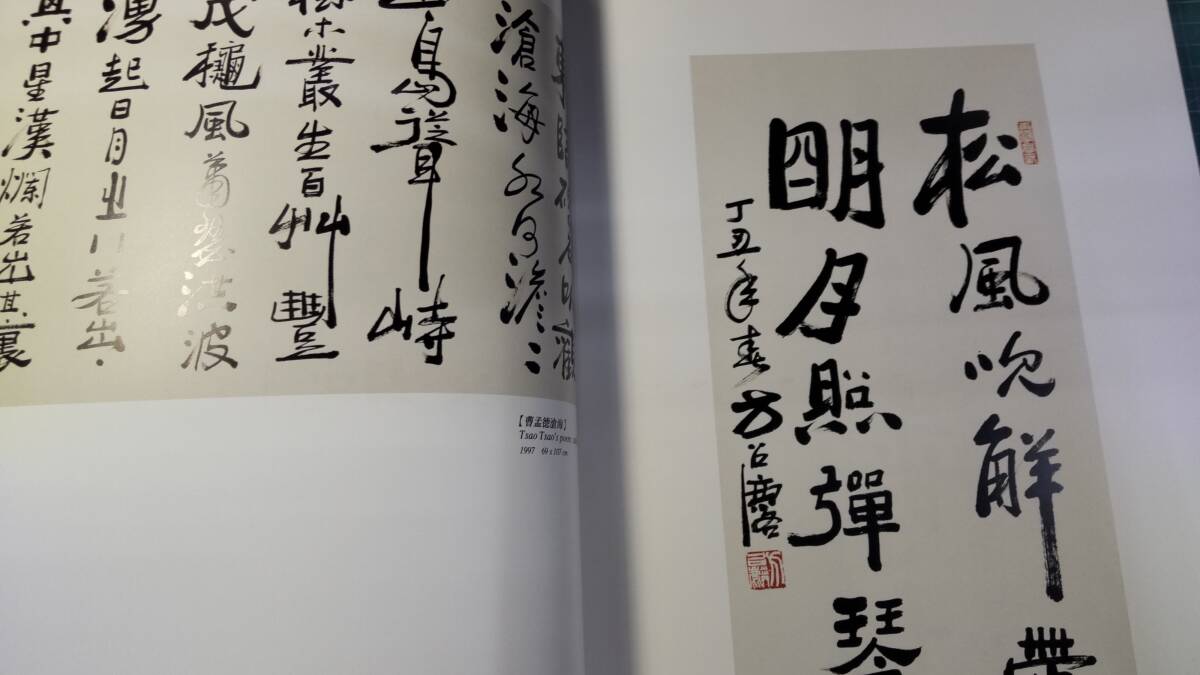 滄海水何澹〻
島聳峙
叢生百艸豐
茂龝風蕭瑟洪波
湧起日月之行若出
其中星漢爛若出其裏
【曹孟德滄海】
Tsao Tsao's poem
1997 69 x 107 cm
松風吹解帶
朙月照彈琴
丁丑年春方召麐